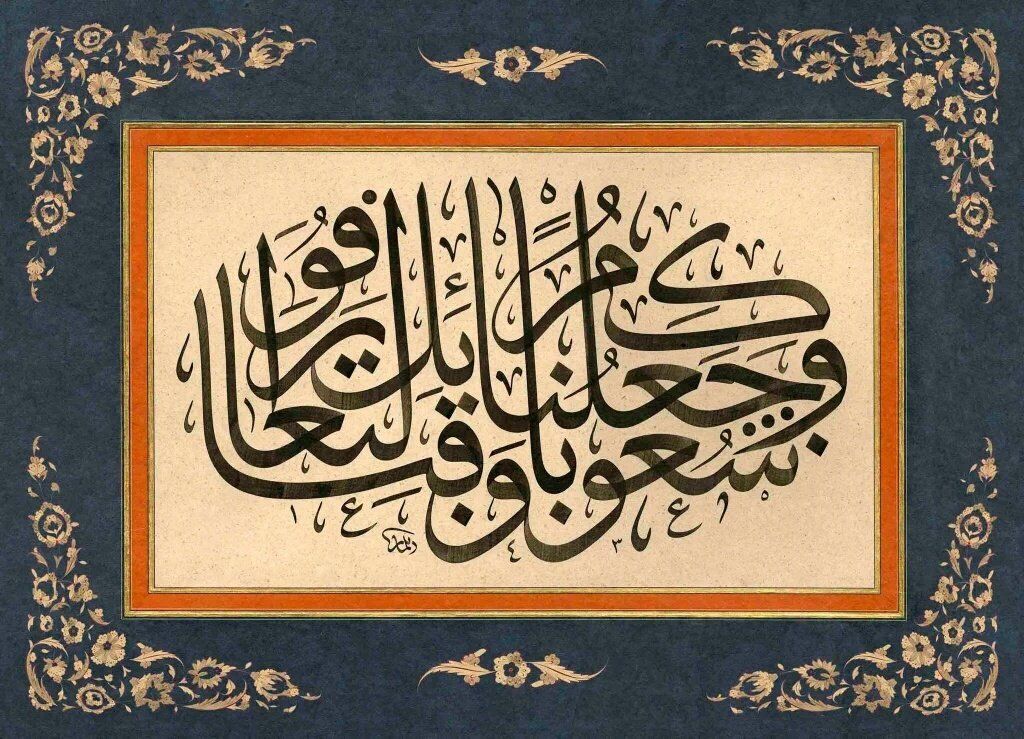 وَجَعَلْنَاكُمْ شُعُوبًا وَقَبَائِلَ لِتَعَارَفُوا